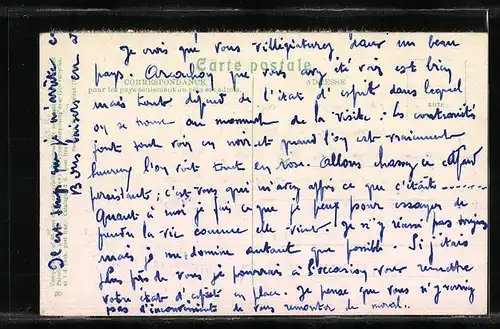 Je vois que vous villégiaturez dans un beau
Carte postale
pays. Arcachon que vous avez été voir est bien
CORRESPONDANCE
ADRESSE
mais tout dépend de l'état d'esprit dans lequel
on se trouve au moment de la visite : les contrariétés
font tout voir en noir et quand l'on est vraiment
heureux l'on voit tout en rose. Allons chassez ce cafard
persistant ; c'est vous qui m'avez appris ce que c'était
Quant à moi je fais ce que je peux pour essayer de
prendre la vie comme elle vient. Je n'y réussi pas toujours
mais je me domine autant que possible. Si j'étais
plus près de vous je pourrais à l'occasion vous remettre
votre état d'esprit en place. Je pense que vous n'y verriez
pas d'inconvénient de vous remonter le moral
Il est temps que je m'arrête
Bons baisers